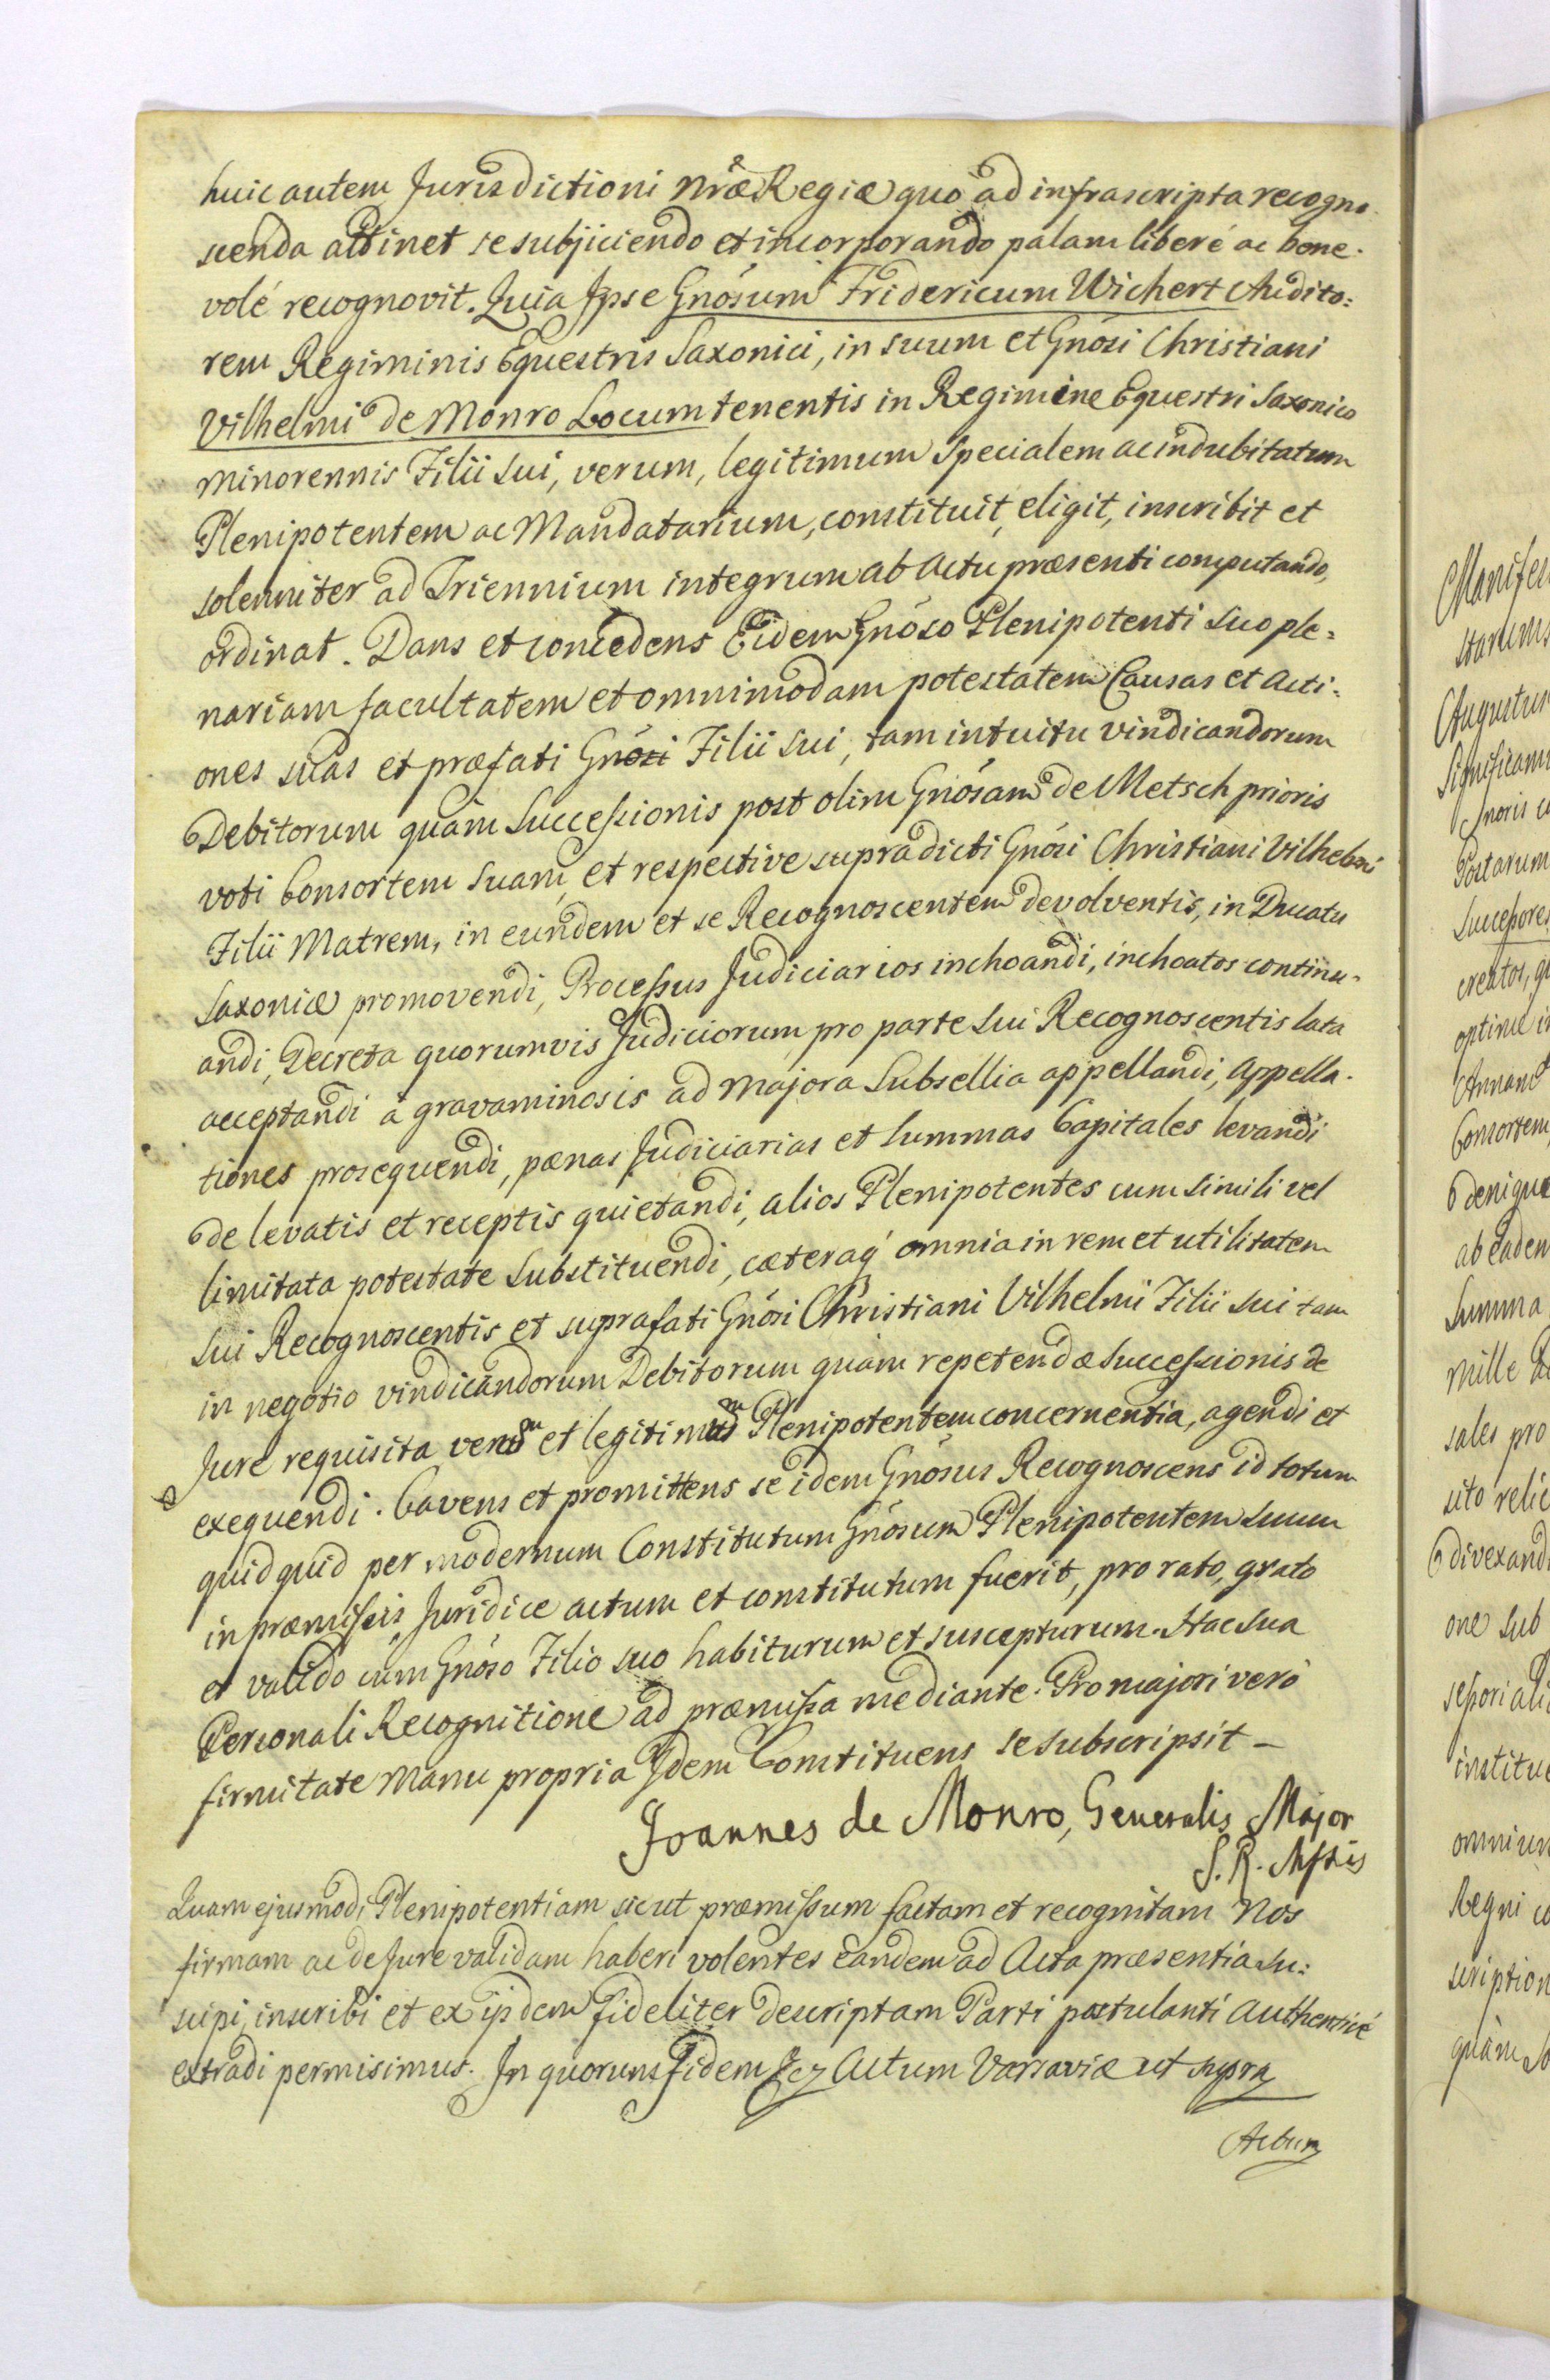 huic autem Jurisdictioni Nræ Regiæ quo ad infrascripta recogno-
scenda attinet se subjiciendo et incorporando palam liberé ac bene-
volé recognovit. Quia Ipse Gnósum Fridericum Wichert Audito:
rem Regiminis Equestris Saxonici, in suum et Gnósi Christiani
Vilhelmi de Monro Locumtenentis in Regimine Equestri Saxonico
Minorennis Filii Sui, verum, legitimum Specialem ac indubitatum
Plenipotentem ac Mandatarium, constituit, eligit, inscribit et
solenniter ad Triennium integrum ab Actu præsenti computando,
ordinat. Dans et concedens Eidem Gnóso Plenipotenti Suo ple:
nariam facultatem et omnimodam potestatem Causas et Acti:
ones suas et præfati Gnósi Filii Sui, tam intuitu vindicandorum
Debitorum quàm Successionis post olim Gnósam de Metsch prioris
voti Consortem Suam, et respective supradicti Gnósi Christiani Vilhelmi
Filii Matrem, in eundem et se Recognoscentem devolventis, in Ducatu
Saxoniæ promovendi, Processus Judiciarios inchoandi, inchoatos continu-
andi, Decreta quorumvis Judiciorum pro parte Sui Recognoscentis lata
acceptandi à gravaminosis ad Majora Subsellia appellandi, Appella-
tiones prosequendi, pænas Judiciarias et Summas Capitales levandi
de levatis et receptis quietandi, alios Plenipotentes cum simili vel
limitata potestate Substituendi, cæteraq́ omnia in rem et utilitatem
Sui Recognoscentis et suprafati Gnósi Christiani Vilhelmi Filii Sui tam
in negotio vindicandorum Debitorum quàm repetendæ Successionis de
Jure requisita verum et legitimum Plenipotentem concernentia, agendi et
exequendi. Cavens et promittens se idem Gnósus Recognoscens id totum
quidquid per modernum Constitutum Gnósum Plenipotentem Suum
in præmissis Juridice actum et constitutum fuerit, pro rato, grato
et valido cum Gnóso Filio suo habiturum et suscepturum. Hac Sua
Personali Recognitione ad præmissa mediante. Pro majori verò
firmitate Manu propria Idem Constituens se subscripsit –
Joannes de Monro, Generalis Major
S. R. Mstis
Quam ejusmodi Plenipotentiam sicut præmissum factam et recognitam Nos
firmam ac de Jure validam haberi volentes eandem ad Acta præsentia su:
scipi, inscribi et ex ijsdem fideliter descriptam Parti postulanti Authenticé
extradi permisimus. In quorum fidem Actum Varsaviæ ut supra